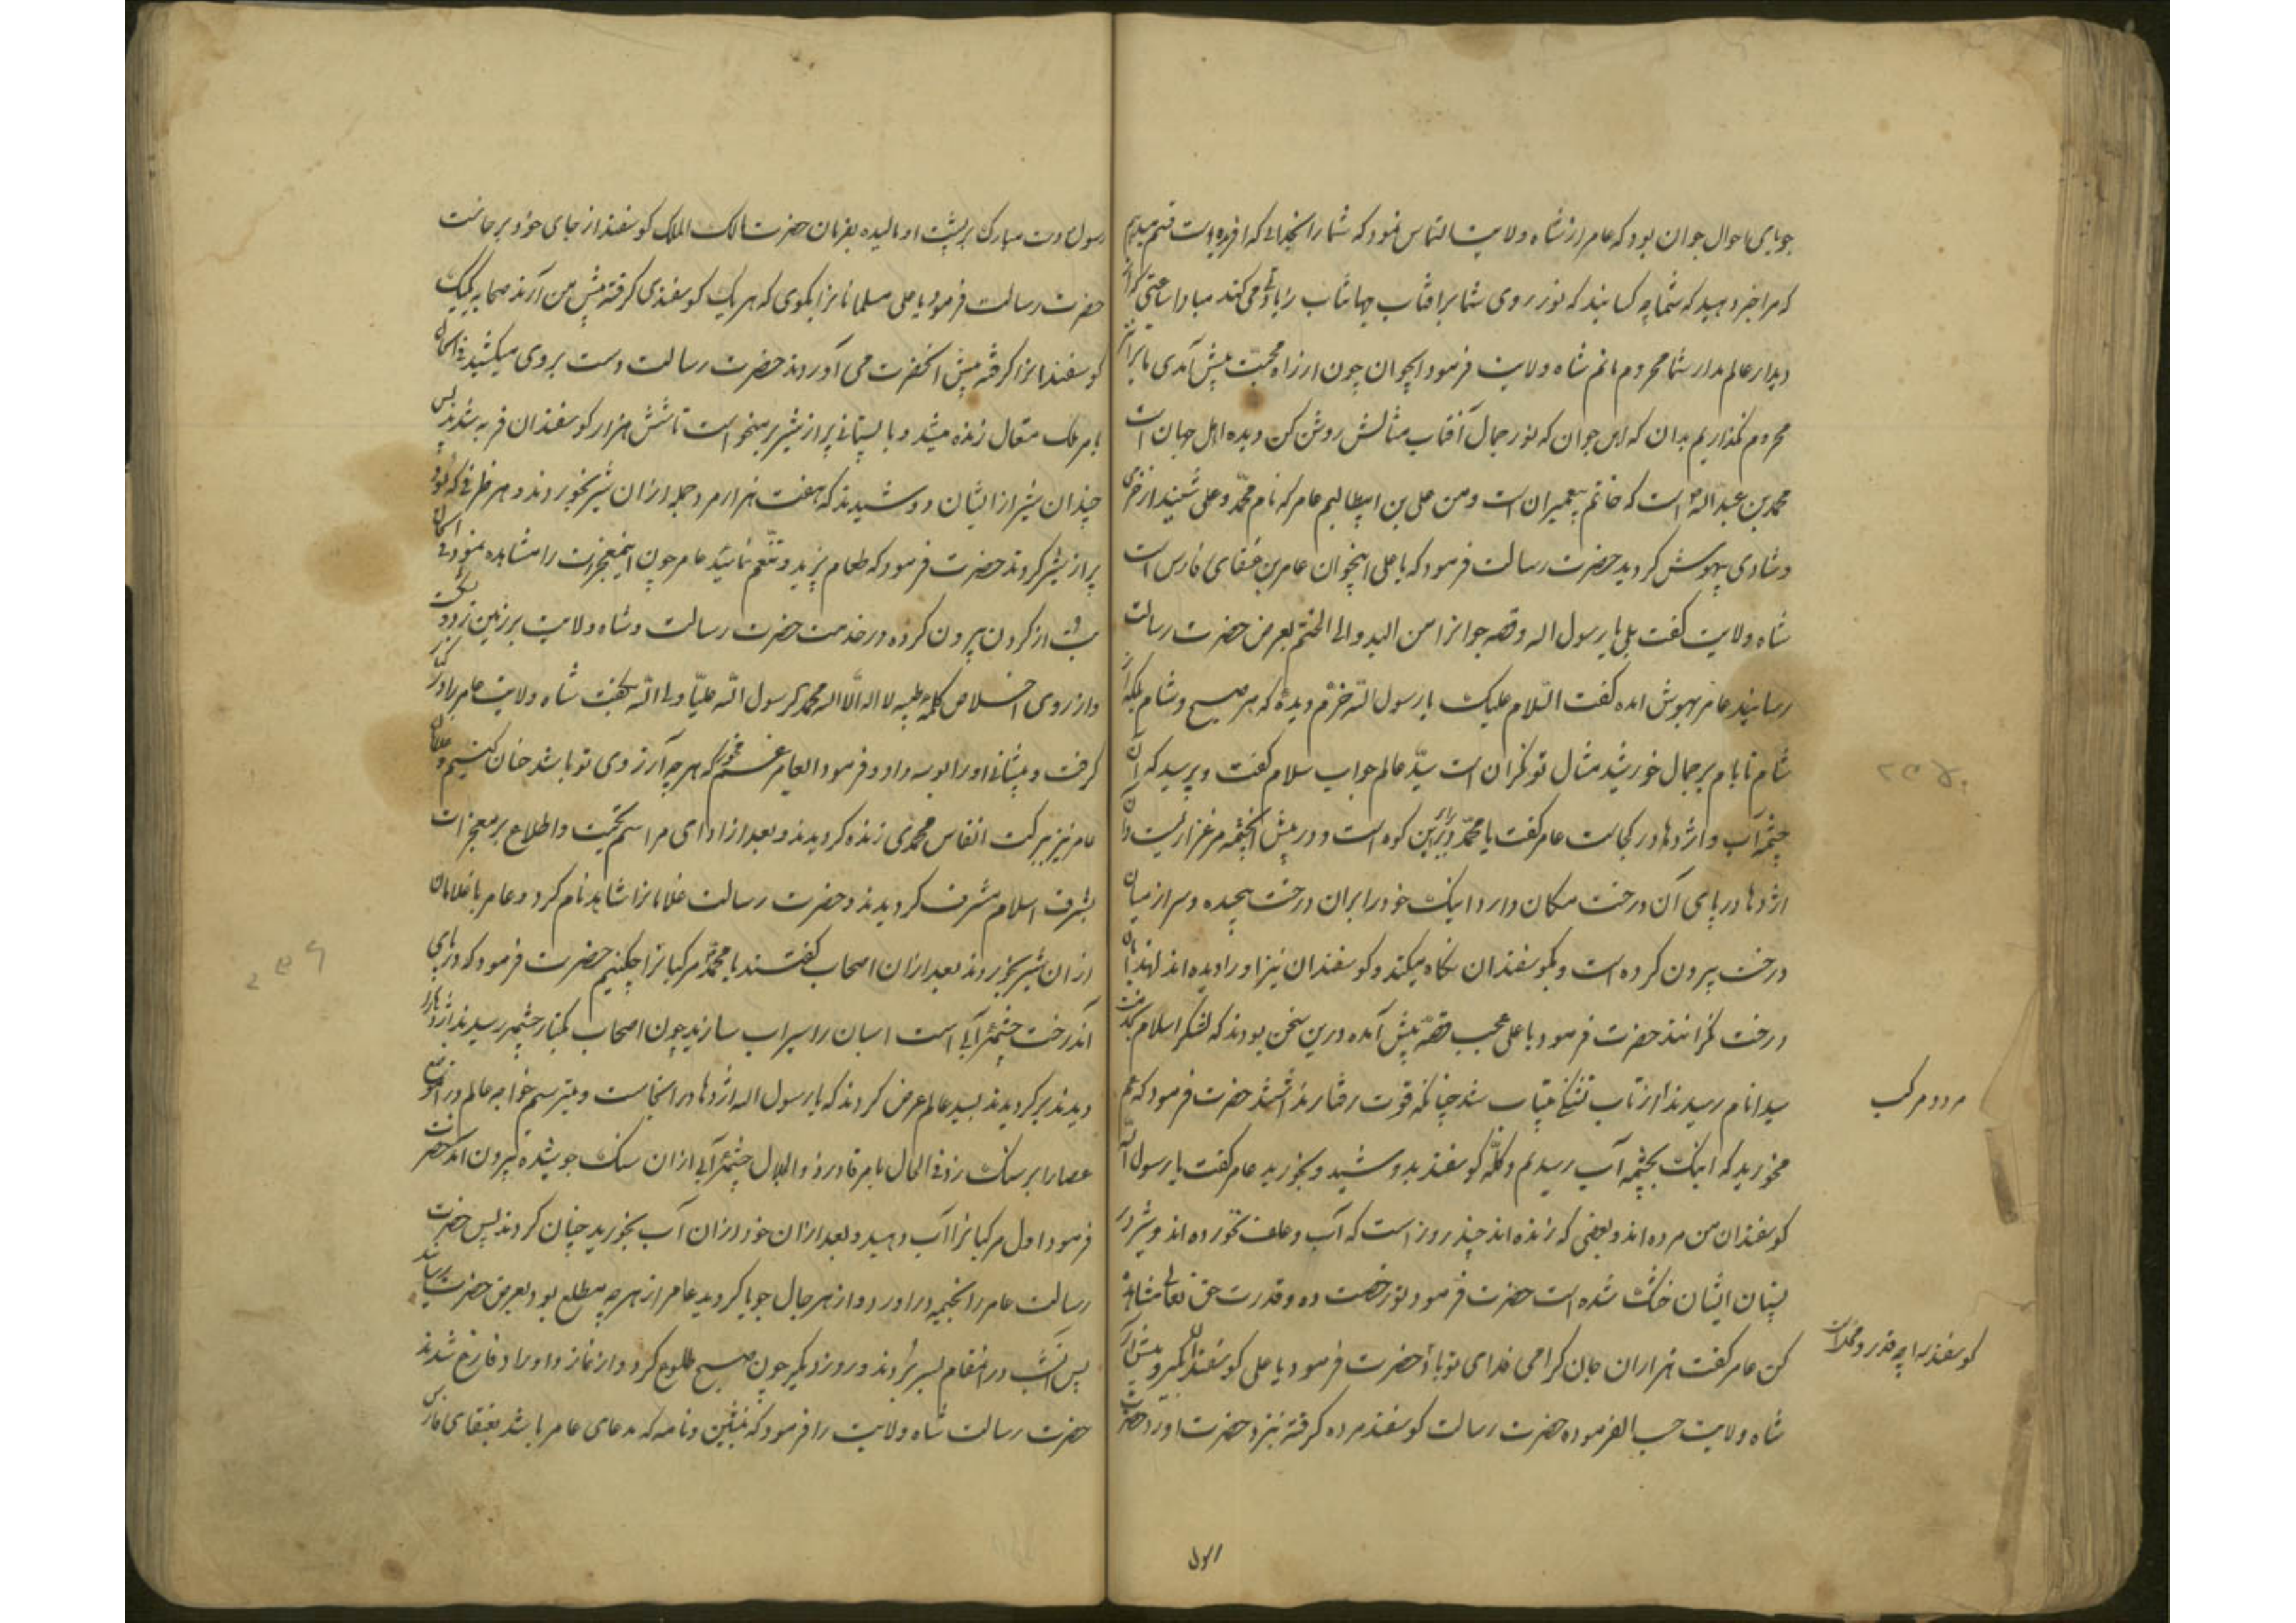 جویای احوال جوان بود که عامر از شاه ولایت التماس نمود که شما را بخدائی که افریده است قسم میدهم
که مرا خبر دهید که شما چه کسانید که نور روی شما بر افتاب جهانتاب زیادتی می کند مبادا ساعتی کز
دیدار عالم مدار شما محروم مانم شاه ولایت فرمود ایجوان چون از راه محبت پیش آمدی ما ترا
محروم نگذاریم بدان که این جوان که نور جمال آفتاب مثالش روشن کن دیده اهل جهان است
محمد بن عبد الله است که خاتم پیغمبران است و من علی بن ابیطالبم عامر که نام محمد و علی شنید از خرمی
و شادی بیهوش کردید حضرت رسالت فرمود که یا علی اینجوان عامر بن عنقای فارس است
شاه ولایت کفت بلی یا رسول اله و قصه جوانرا من البدو الی الختم بعرض حضرت رسالت
رسانید عامر بهوش امده کفت السلام علیک یا رسول الله خرم دیدۀ که هر صبح و شام بلکه از
شام تا بام بر جمال خورشید مثال تو نگران است سید عالم جواب سلام کفت و پرسید که آن
چشمه آب و اژدها در کجاست عامر کفت یا محمد در زیر این کوه است و در پیش انچشمه مرغزاریست و آن
اژدها در پای آن درخت مکان دارد اینک خود را بران درخت پیچیده و سر از میان
درخت بیرون کرده است و بکوسفندان نکاه میکند و کوسفندان نیز او را دیده اند لهذا بآن
درخت نگرانند حضرت فرمود یا علی عجب قصۀ پیش آمده درین سخن بودند که لشکر اسلام بخدمت
سید انام رسیدند از تاب تشنکی بیتاب شد چنانکه قوت رفتار نداشتند حضرت فرمود که غم
مخورید که اینک بچشمه آب رسیدیم و کله کوسفند بدوشید و بخورید عامر کفت یا رسول الله
کوسفندان من مرده اند و بعضی که زنده اند چند روز است که آب و علف نخورده اند و شیر در
پستان ایشان خشک شده است حضرت فرمود تو رخصت ده و قدرت حق تعالی مشاهده
کن عامر کفت هزاران جان کرامی فدای تو باد حضرت فرمود یا علی کوسفند را بگیر و پیش آر
شاه ولایت حسب الفرموده حضرت رسالت کوسفند مرده کرفته نزد حضرت اورد حضرت
مردو مرکب
رسول
رسول دست مبارک بر پشت او مالیده بفرمان حضرت مالک الملک کوسفند از جای خود برخاست
حضرت رسالت فرمود یا علی مسلمانانرا بکوی که هر یک کوسفندی کرفته پیش من آرند صحابه یکیک
کوسفندانرا کرفته پیش انحضرت می آوردند حضرت رسالت دست بروی میکشید فی الحال
بامر ملک متعال زنده میشد و با پستانی پر از شیر برمیخواست تا شش هزار کوسفندان فربه شدند پس
چندان شیر از ایشان دوشیدند که هفت هزار مرد جمله ازان شیر بخوردند و هر ظرفی که بود
پر از شیر کردند حضرت فرمود که طعام بپزید و تنعم نمایید عامر چون اینمعجزات را مشاهده نمود فی الحال
بت از کردن بیرون کرده در خدمت حضرت رسالت و شاه ولایت بر زمین زد و
و از روی اخلاص کلمه طیبه لا اله الا اله محمد رسول الله علیا ولی الله بکفت شاه ولایت عامر را در
کرفت و پیشانی او را بوسه داد و فرمود ایعامر غم مخور که هر چه آرزوی تو باشد چنان کنیم و غلامان
عامر نیز ببرکت انفاس محمدی زنده کردیدند و بعد از ادای مراسم تحیت و اطلاع بر معجزات
بشرف اسلام مشرف کردیدند و حضرت رسالت غلامانرا شاهد نام کرد و عامر با غلامان
ازان شیر بخوردند بعد ازان اصحاب کفتند یا محمد مرکبانرا چکنیم حضرت فرمود که در پای
آندرخت چشمۀ آبی است اسبان را سیراب سازید چون اصحاب بکنار چشمه رسیدند اژدها را
دیدند برکردیدند بسید عالم عرض کردند که یا رسول اله اژدها در انجاست و میترسیم خواجه عالم در انموضع
عصا را بر سنک زد فی الحال بامر قادر ذو الجلال چشمۀ آبی ازان سنک جوشیده بیرون امد حضرت
فرمود اول مرکبانرا آب دهید و بعد ازان خود ازان آب بخورید چنان کردند پس حضرت
رسالت عامر را بخیمه دراورد و از هر حال جویا کردید عامر از هر چه مطلع بود بعرض حضرت رسانید
پس آنشب در انمقام بسر بردند و روز دیکر چون صبح طلوع کرد و از نماز و اوراد فارغ شدند
حضرت رسالت شاه ولایت را فرمود که بنشین و نامه که مدعای عامر باشد بعنقای فارس